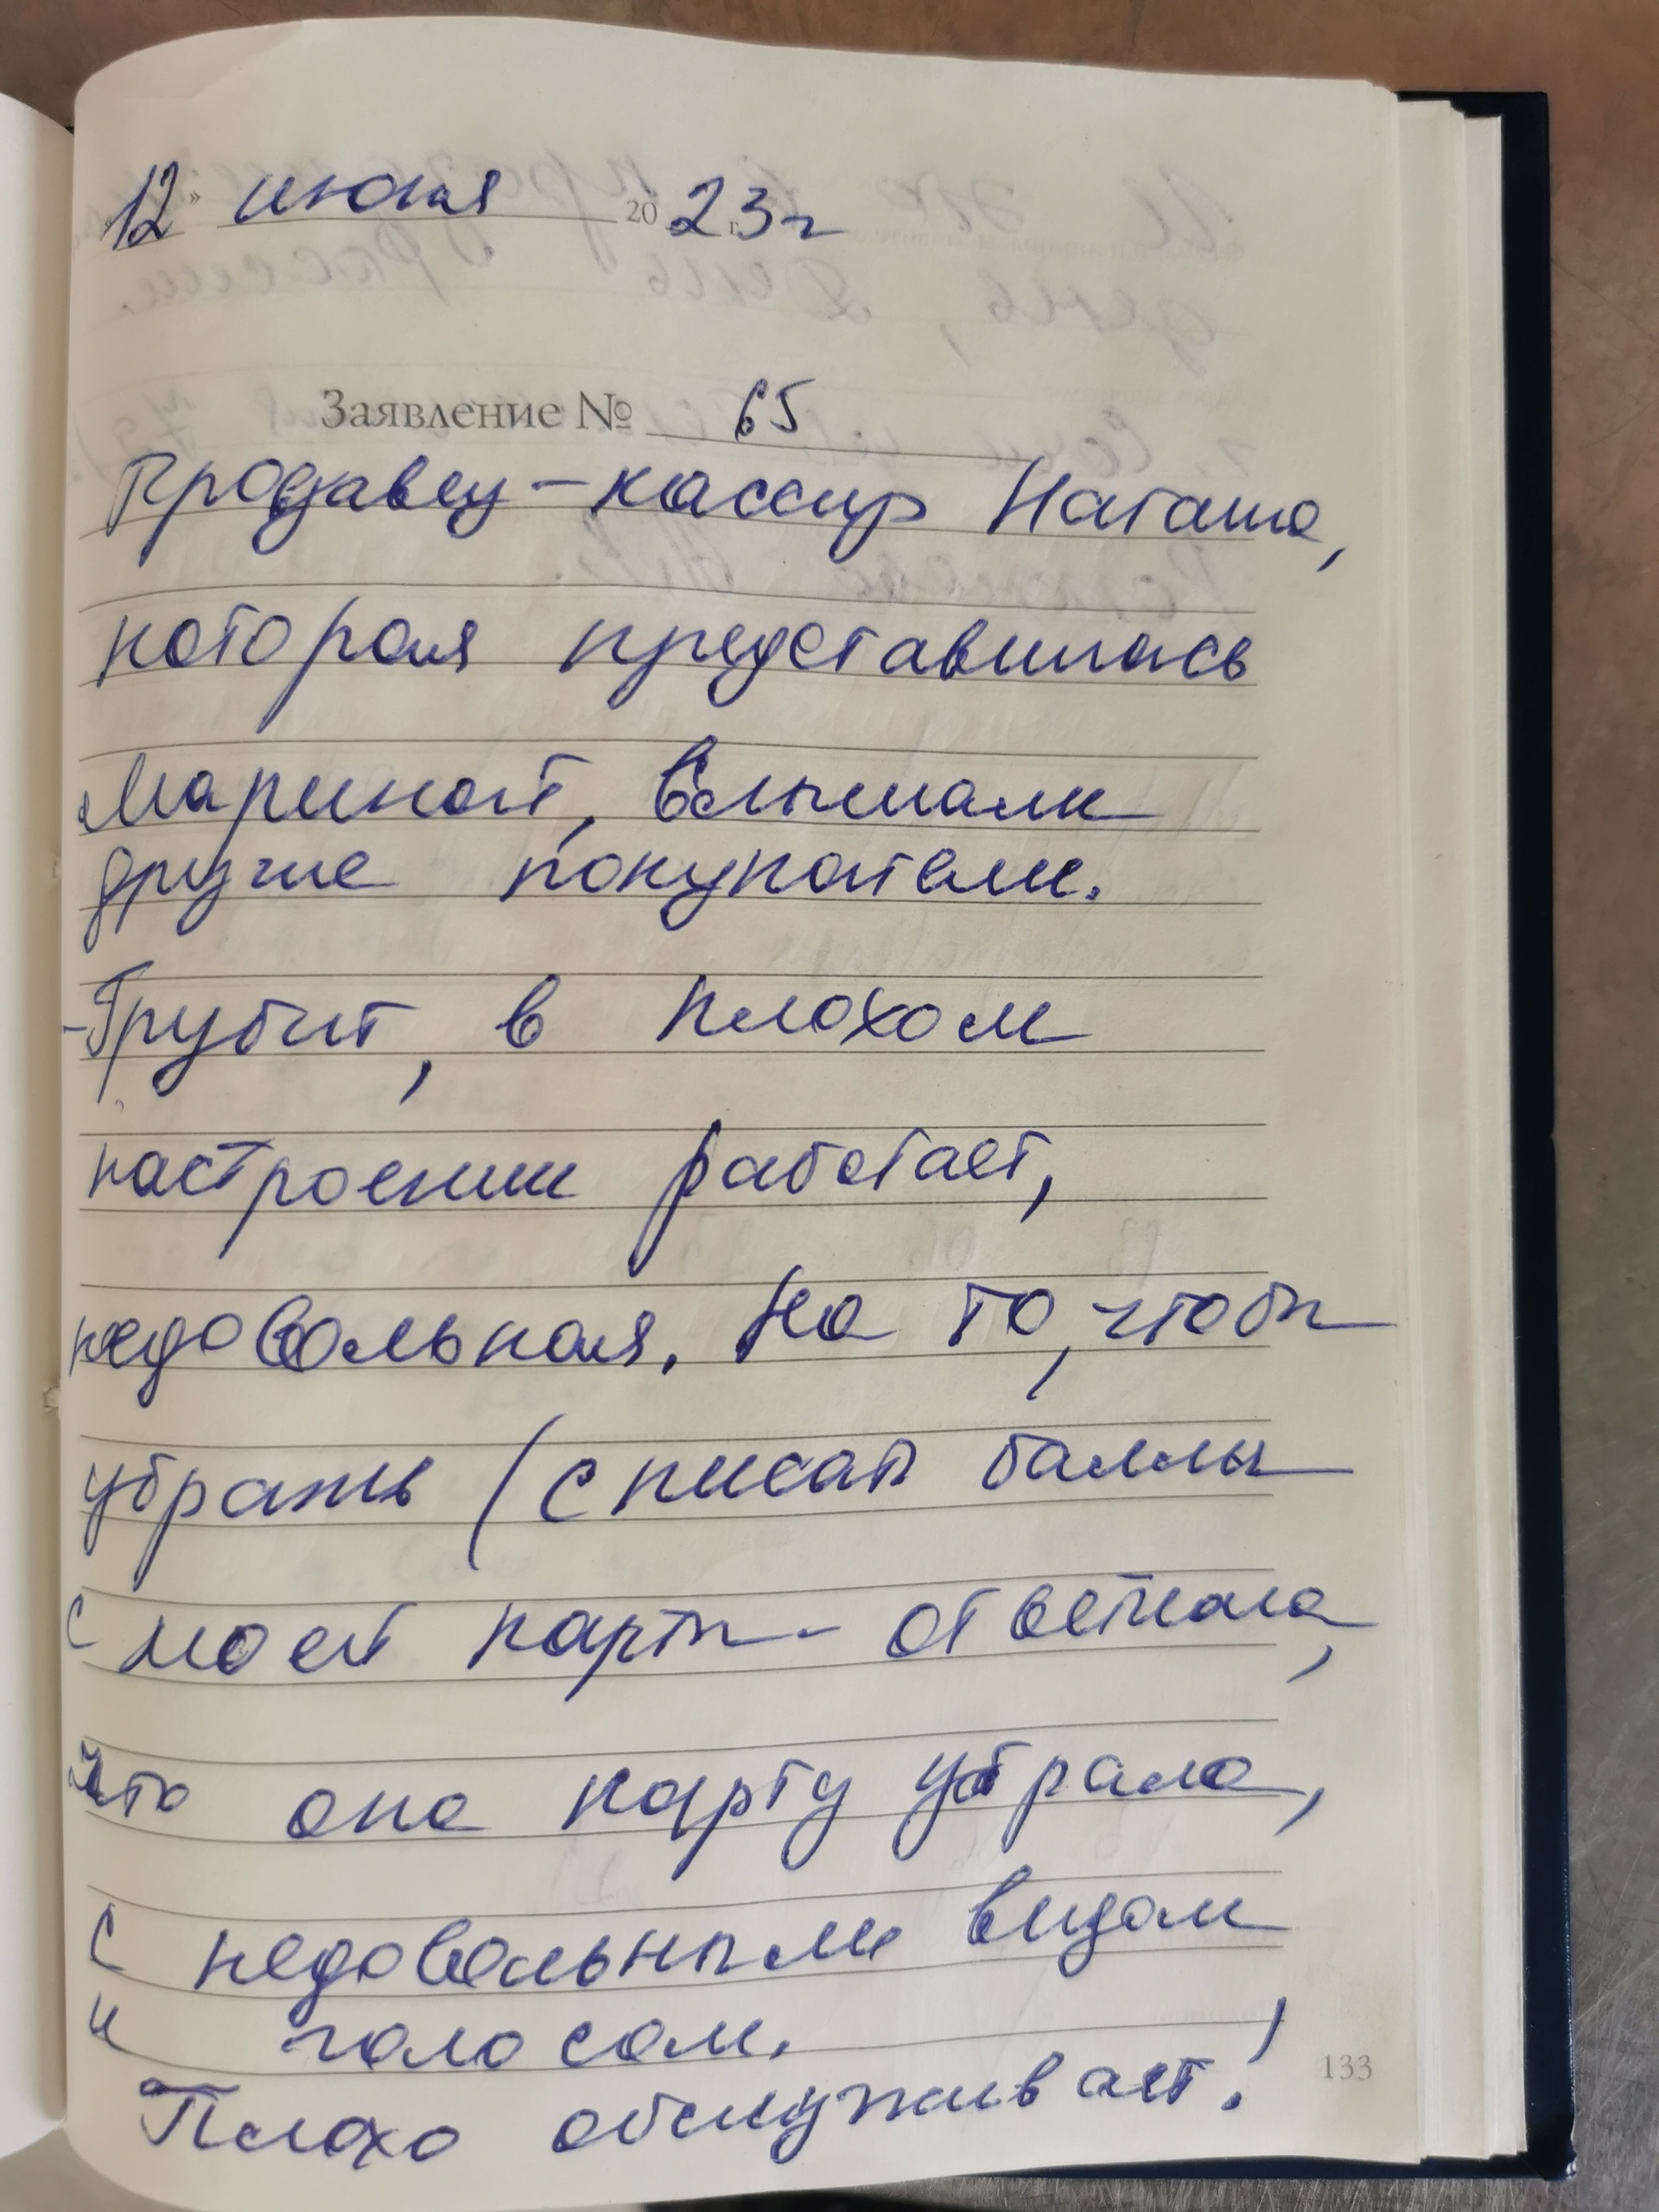 "12" июня 2023 г
Заявление № 65
Продавец-кассир Наташа,
которая представилась
Мариной, Слышали
другие покупатели.
-Грубит, в плохом
настроении работает,
недовольная. На то, чтобы
убрать (списат баллы
с моей карты - ответила,
что она карту убрала,
с недовольными видом
и голосом.
Плохо обслуживает!
133